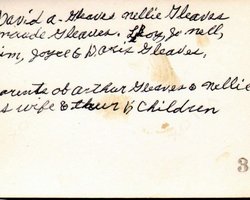 David A. Gleaves Nellie Gleaves
maude Gleaves. Jo nell,
im, Joyce & Doris Gleaves,
arents of Arthur Gleaves & Nellie
s wife & their 6 Children
3